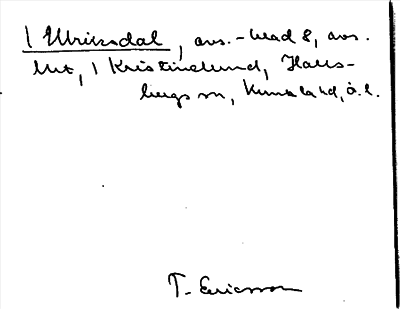 1 Ulriksdal, avs.-blad 8, avs.
litt, 1 Kristinelund, Halls-
bergs sn, Kumla hd, ö. l.
T. Ericsson